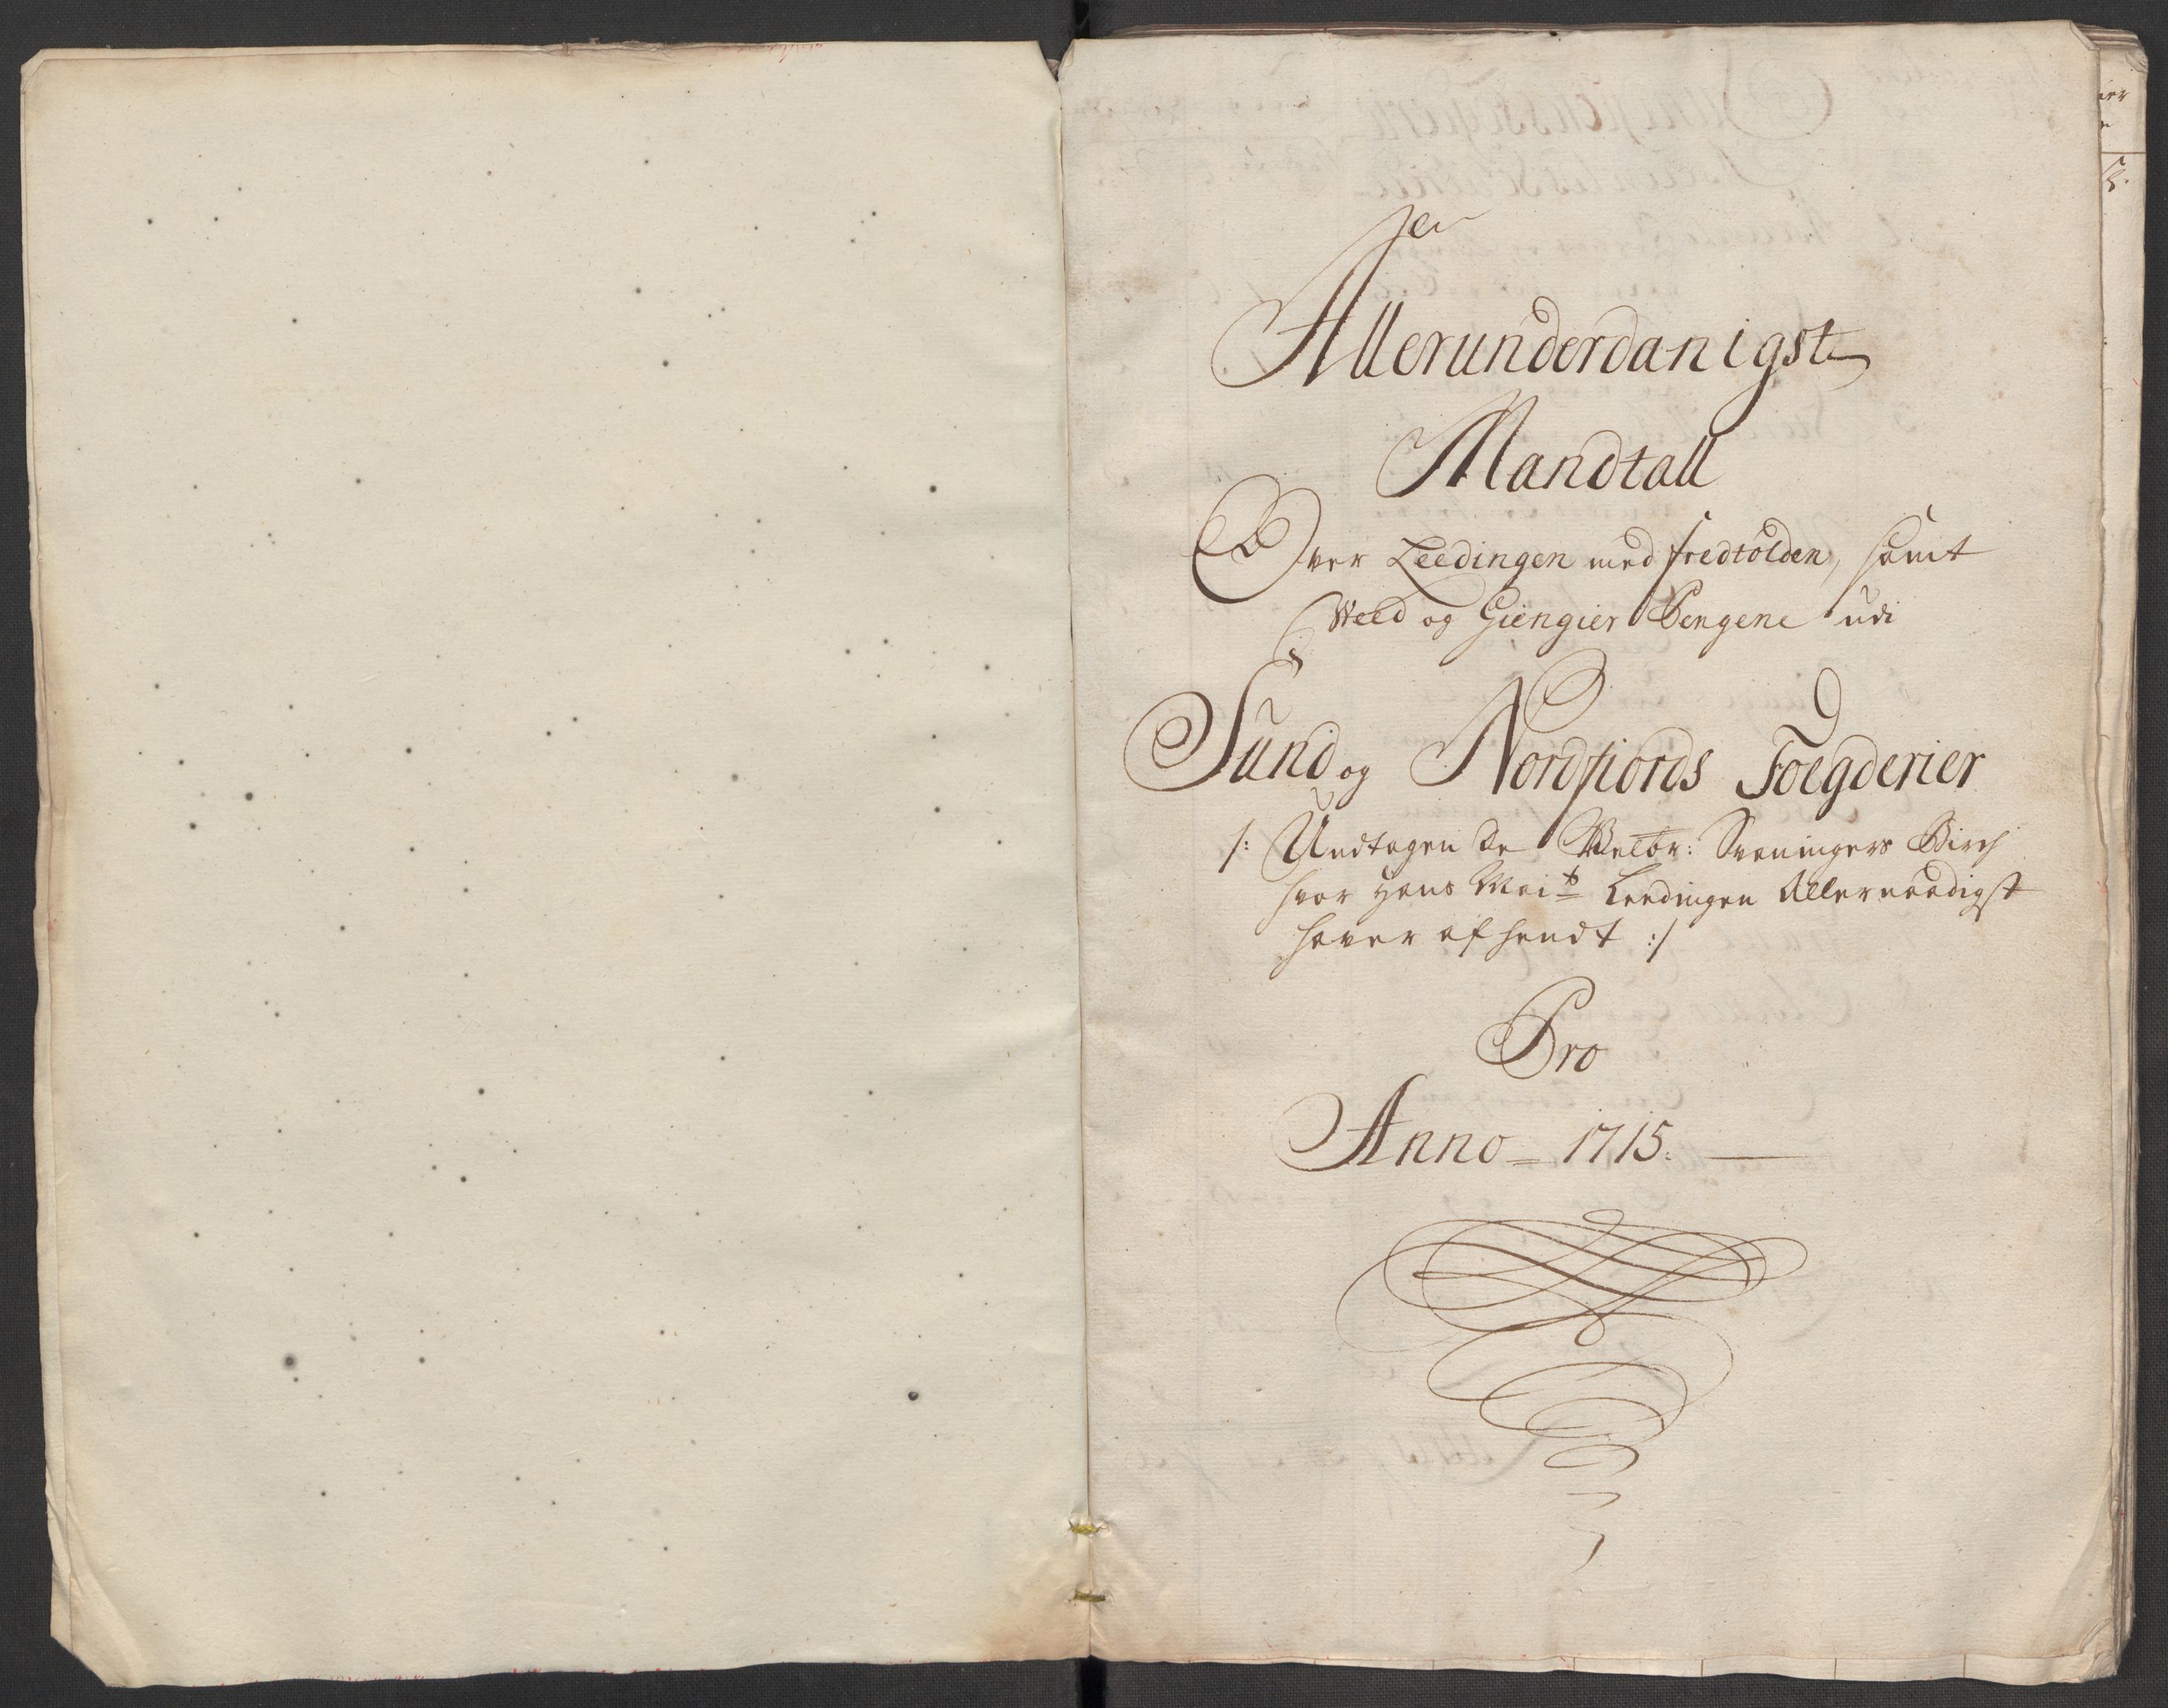 Allerunderdanigste
Mandtall
Over Leedingen med fredtolden, samt
Weed og Giengier Pengene udi
Sund og Nordfiords Foegderier
/: Undtagen De Velbr: Svaningers Birch
hvor Hans Mait Leedingen Allernaadigst
haver afhendt :/
Pro
Anno - 1715.